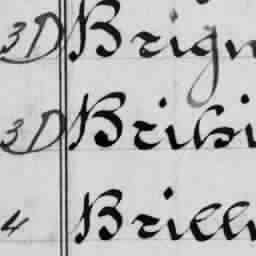 3D Brign
3D Bribi
4 Brill